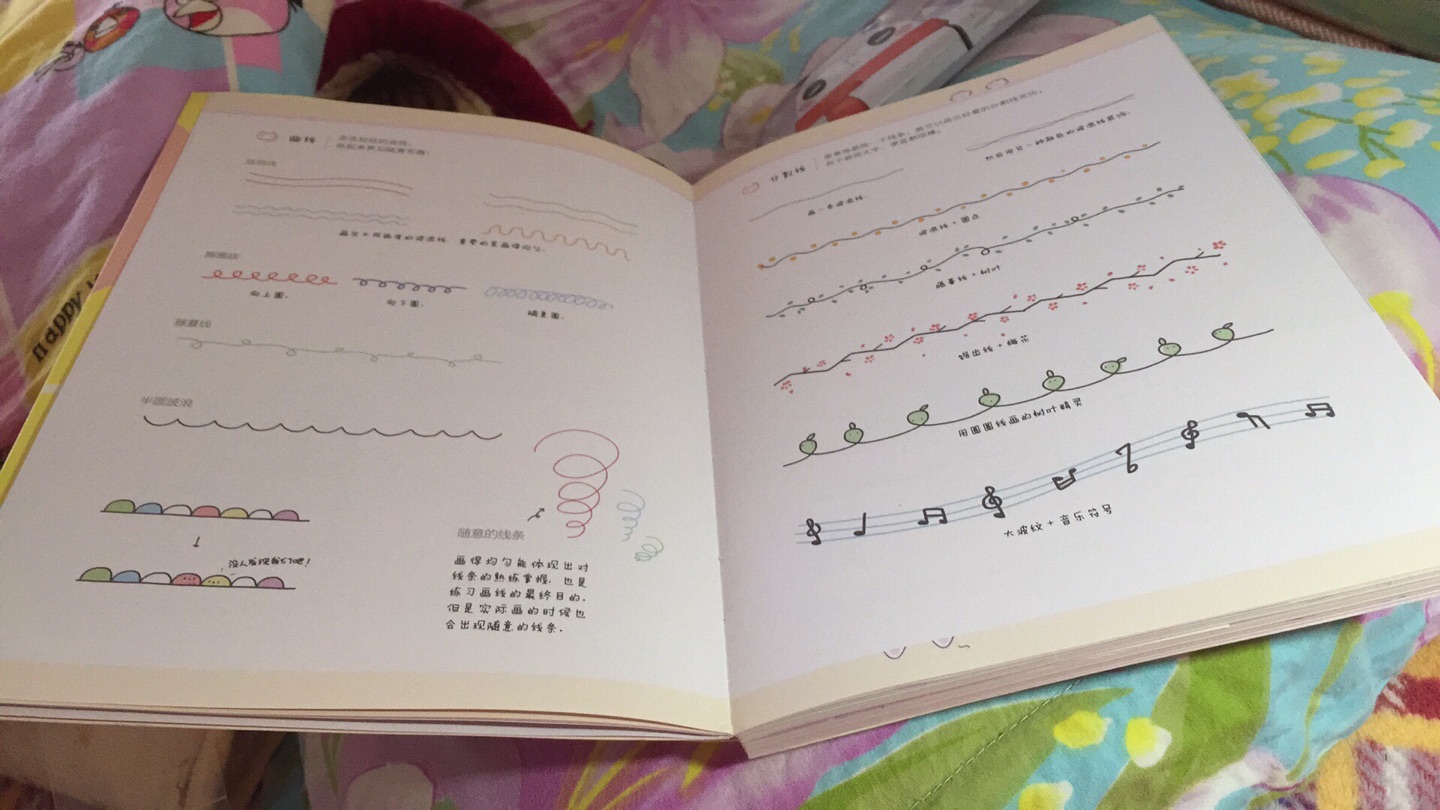 曲线
波浪线
画出不同幅度的波浪线，重要的是画得均匀。
圈圈线
向上圈。
向下圈。
随意圈。
藤蔓线
半圆波浪
没人发现我们吧！
随意的线条
画得均匀能体现出对
线条的熟练掌握，也是
练习画线的最终目的。
但是实际画的时候也
会出现随意的线条。
分割线
画一条波浪线
波浪线+圆点
藤蔓线+树叶
梅花
用圈圈线画的树叶精灵
大波纹+音乐符号
happy